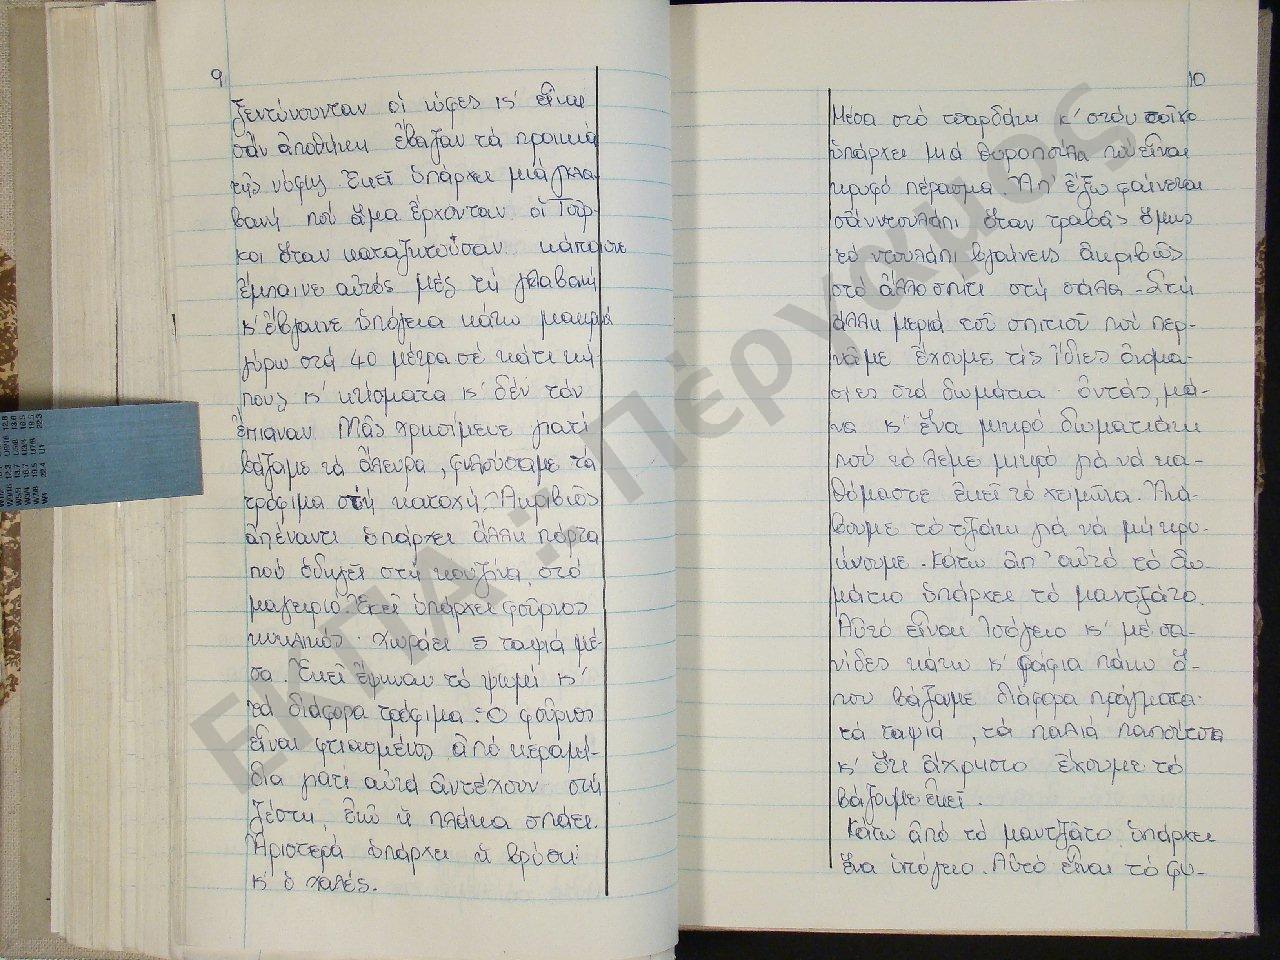 9
ξεντύνουνταν οἱ νύφες κ' εἶναι
σάν ἀποθήκη ἔβαζαν τά προικιά
τῆς νύφης. Ἐκεῖ ὑπάρχει μιά γκλα-
βανή πού ἅμα ἔρχονταν οἱ Τοῦρ-
κοι ὅταν καταζητοῦσαν κάποιον
ἔμπαινε αὐτός μές τή γκλαβανή
κ' ἔβγαινε ὑπόγεια κάτω μακριά
γύρω στά 40 μέτρα σέ κάτι κή
πους κ' κτίσματα κ' δέν τόν
ἔπιαναν. Μᾶς χρησίμευε γιατί
βάζαμε τά ἄλευρα, φυλούσαμε τά
τρόφιμα στή κατοχή. Ἀκριβῶς
ἀπέναντι ὑπάρχει ἄλλη πόρτα
πού ὁδηγεῖ στή κουζίνα, στό
μαγειριό. Ἐκεῖ ὑπάρχει φοῦρνος
κυκλικός. Χωράει 5 ταψιά μέ-
σα. Ἐκεῖ ἔψηναν τό ψωμί κ'
τά διάφορα τρόφιμα. Ὁ φοῦρνος
εἶναι φτιασμένος ἀπό κεραμί-
δια γιατί αὐτά ἀντέχουν στή
ζέστη, ἐνῶ ἡ πλάκα σπάει.
Ἀριστερά ὑπάρχει ἡ βρύση
κ' ὁ χαλές.
10
Μέσα στό τσαρδάκι κ' στόν τοῖχο
ὑπάρχει μιά θυροπούλα πού εἶναι
κρυφό πέρασμα. Ἀπ' ἔξω φαίνεται
σάν ντουλάπι ὅταν τραβᾶς ὅμως
τό ντουλάπι βγαίνεις ἀκριβῶς
στό ἄλλο σπίτι στή σάλα. Στή
ἄλλη μεριά τοῦ σπιτιοῦ πού περ-
νᾶμε ἔχουμε τίς ἴδιες ὀνομα-
σίες στά δωμάτια· ὀντάς, μά-
να κ' ἕνα μικρό δωματιάκι
πού τό λέμε μικρό γιά νά κα-
θόμαστε ἐκεῖ τό χειμῶνα. Ἀνά-
βουμε τό τζάκι γιά νά μή κρυ-
ώνουμε. Κάτω ἀπ' αὐτό τό δω-
μάτιο ὑπάρχει τό μαντζάτο.
Αὐτό εἶναι ἰσόγειο κ' μέ σα-
νίδες κάτω κ' ράφια πάνω ὅ-
που βάζαμε διάφορα πράγματα·
τά ταψιά, τά παλιά παπούτσια
κ' ὅτι ἄχρηστο ἔχουμε τό
βάζουμε ἐκεῖ.
Κάτω ἀπό τό μαντζᾶτο ὑπάρχει
ἕνα ὑπόγειο. Αὐτό εἶναι τό φυ-
ΕΚΠΑ : Πέργαμος